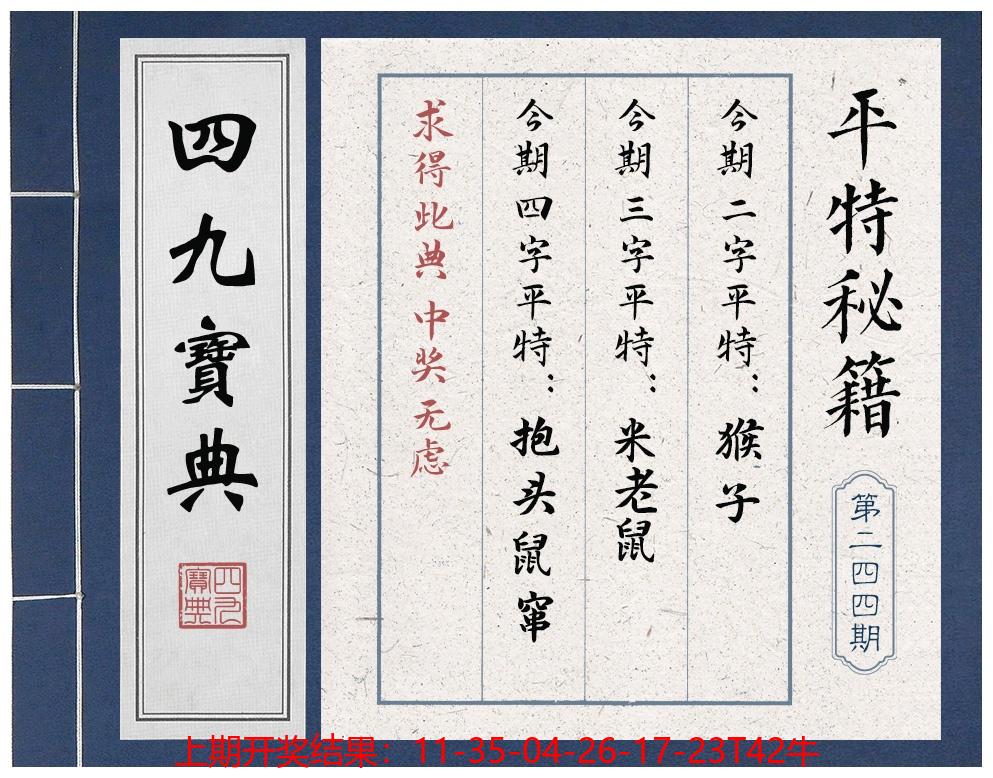 平特秘籍
第二四四期
今期二字平特：猴子
今期三字平特：米老鼠
今期四字平特：抱头鼠窜
求得此典 中奖无虑
四九寶典
四九寶典
上期开奖结果：11-35-04-26-17-23T42牛